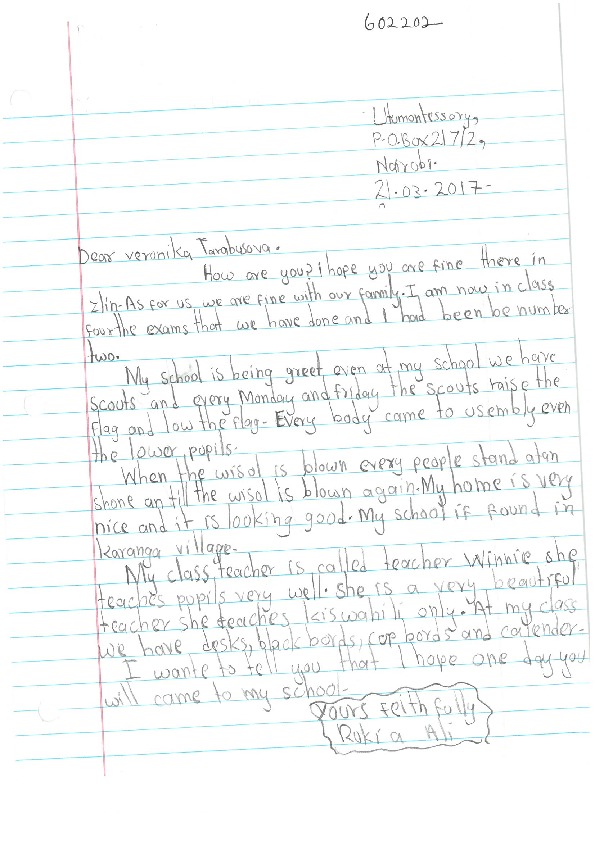 602202
Utumontessory,
P.O.Box 217/2,
Nairobi.
21.03.2017-
Dear veronika Tarabusova.
How are you? i hope you are fine there in
zlin-As for us, we are fine with our family. I am now in class
four the exams that we have done and I had been be number
two.
My school is being greet even at my school we have
scouts and every Monday and friday the scouts raise the
flag and low the flag- Every body came to usembly even
the lower pupils.
When the wisol is blown every people stand atan
shone an till the wisol is blown again. My home is very
nice and it is looking good. My school if found in
karanga village-
My class teacher is called teacher Winnie she
teaches pupils very well. she is a very beautiful
teacher she teaches kiswahili only. At my class
we have desks, black bords, cop bords and calender-
I wante to tell you that I hope one day you
will came to my school-
yours feith fully
Rokia Ali